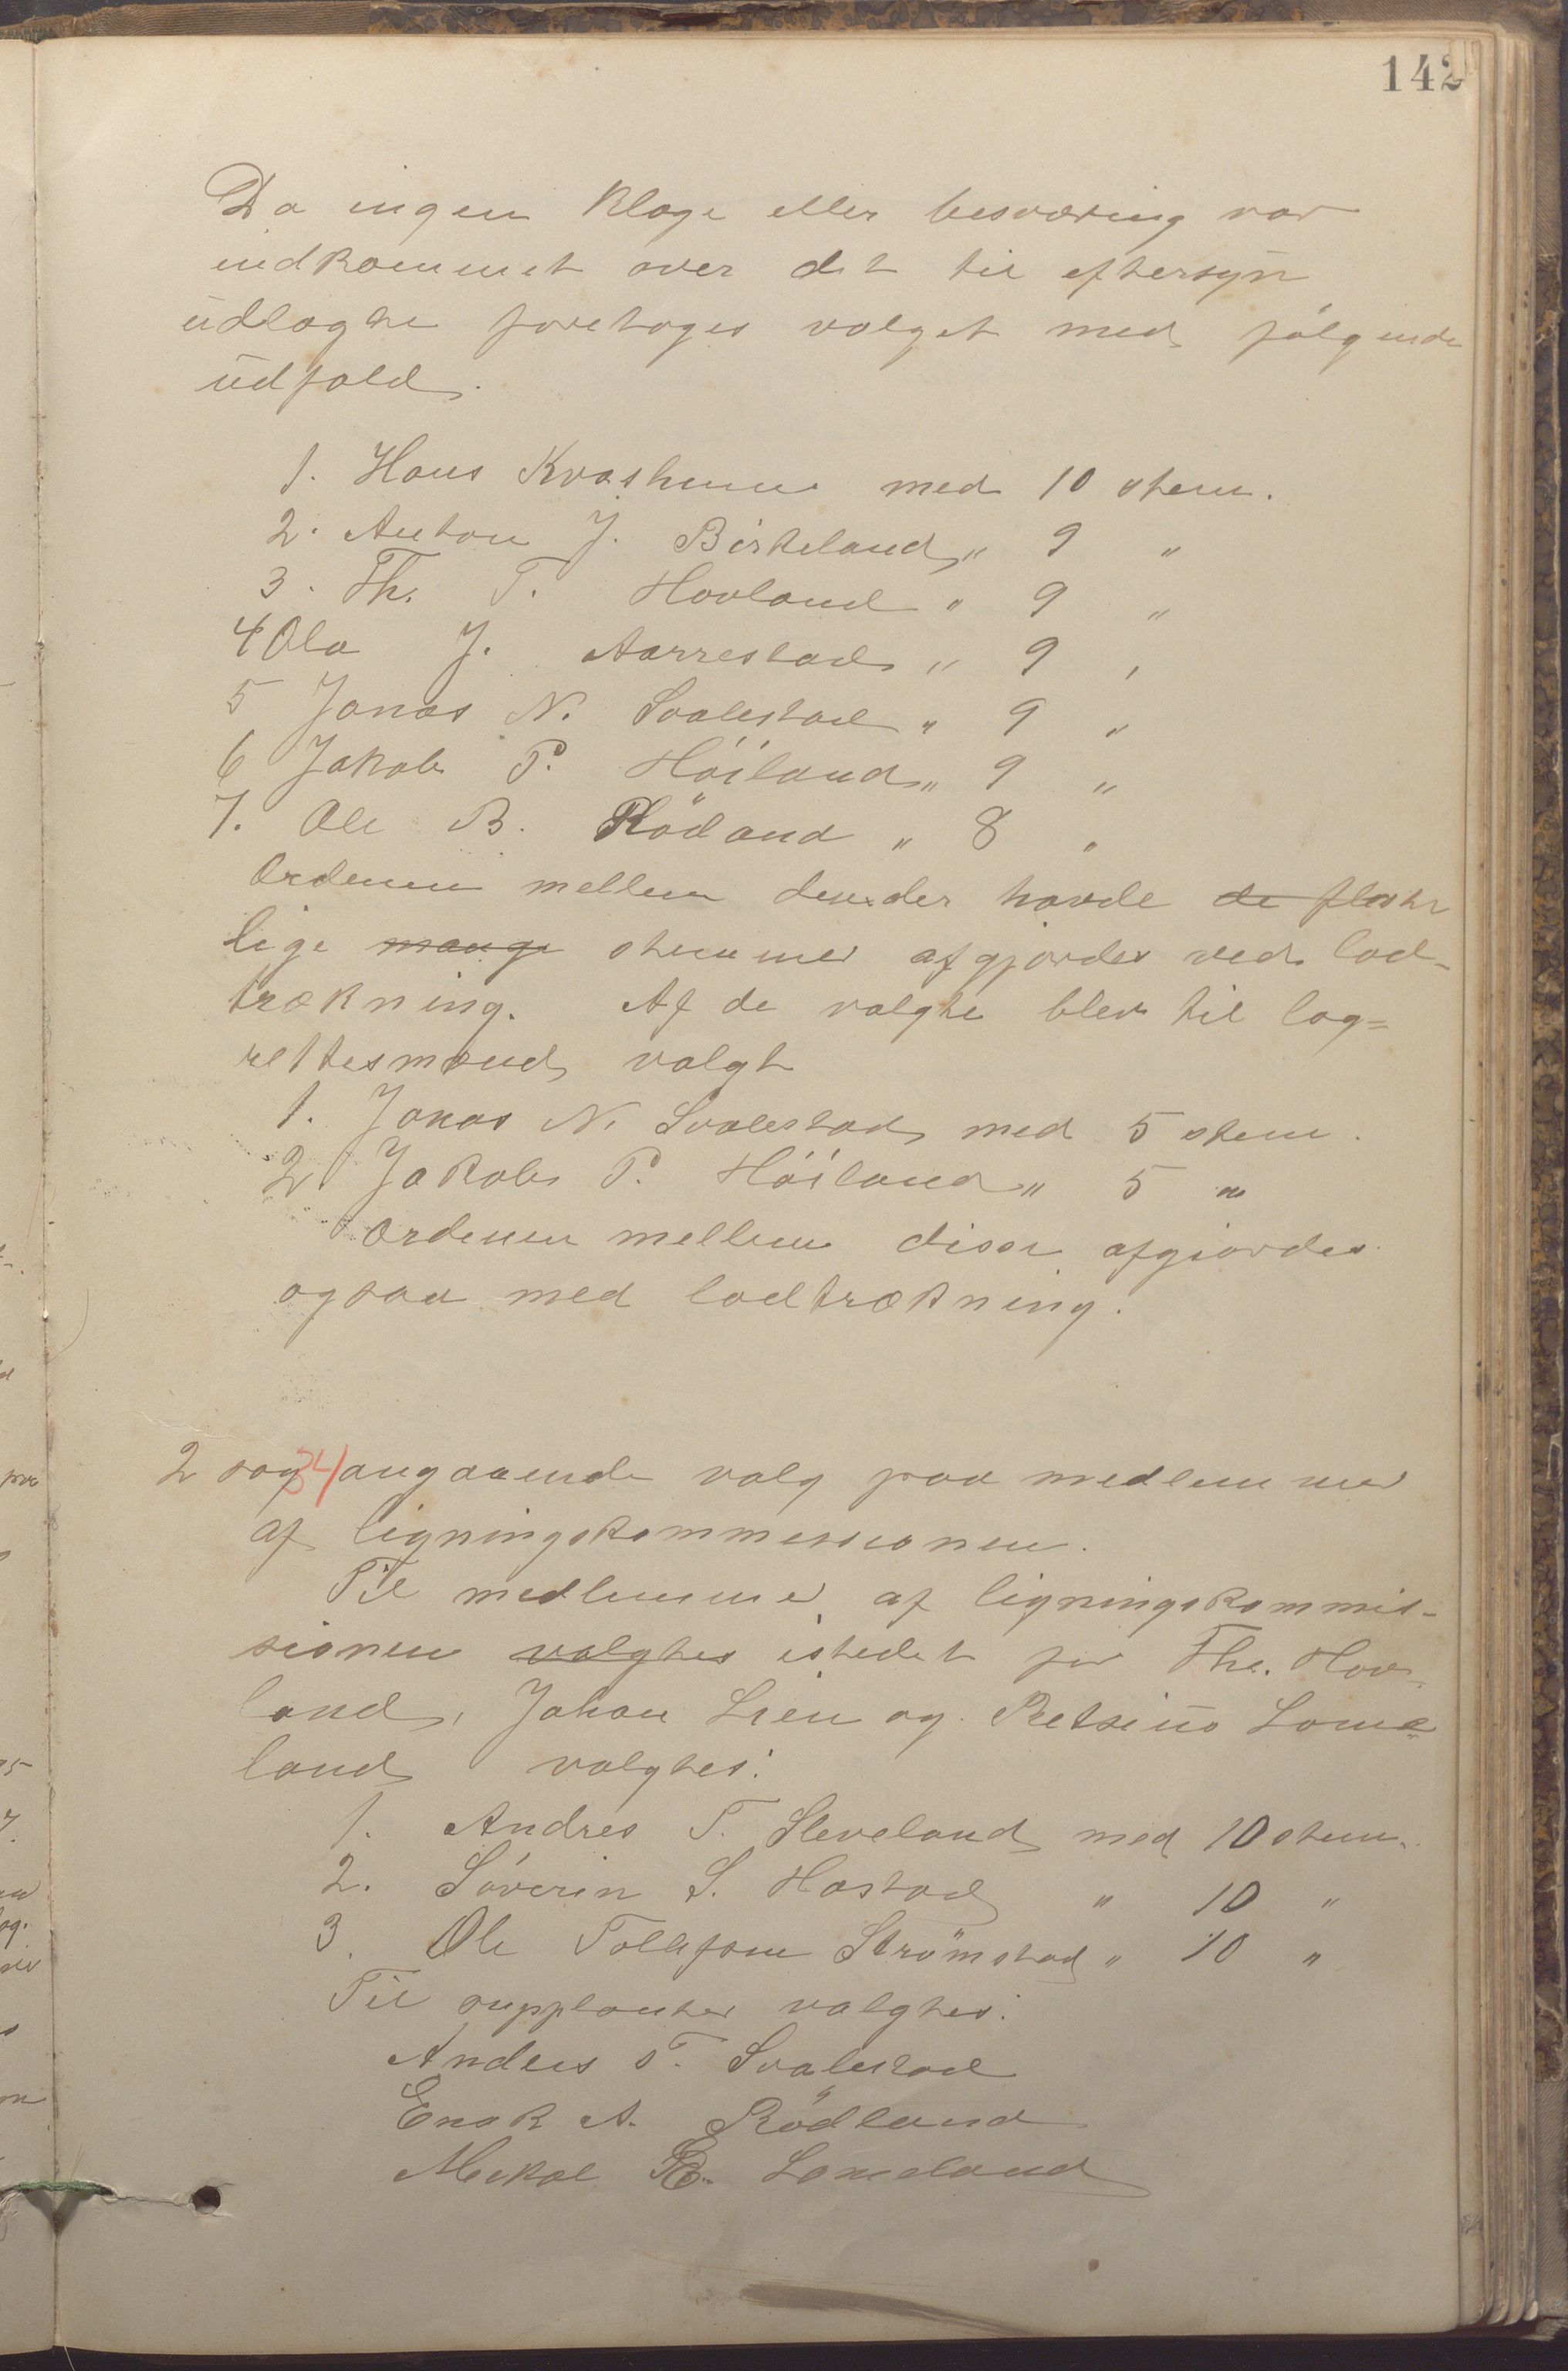 142
Da ingen klage eller besværing var
indkommet over det til eftersyn
udlagte foretoges valget med følgende
udfald.
1. Hans Kvasheim med 10 stem.
2. Anton J. Birkeland " 9 "
3. Th. T. Hovland " 9 "
4 Ola J. Aarrestad " 9 "
5 Jonas N. Svalestad " 9 "
6 Jakob P. Höiland " 9 "
7. Ole B. Rödland " 8 "
Ordenen mellem dem der havde de fleste
lige mange stemmer afgjordes ved lod-
trækning. Af de valgte blev til lag-
rettesmænd valgt
1. Jonas N. Svalestad med 5 stem.
2 Jakob P. Höiland " 5 "
Ordenen mellem disse afgiordes
ogsaa med lodtrækning.
2 sag 34/ angaaende valg paa medlemmer
af ligningskommessionen.
Til medlemmer af ligningskommis-
sionen valgtes istedet for Th. Hov-
land, Johan Lien og Retsius Lome-
land valgtes:
1. Andres T. Sleveland med 10 stem.
2. Söverin S. Hastad " 10 "
3. Ole Tollefsen Strömstad " 10 "
Til supplanter valgtes:
Anders T. Svalestad
Enok A. Rödland
Mekal R. Lomeland